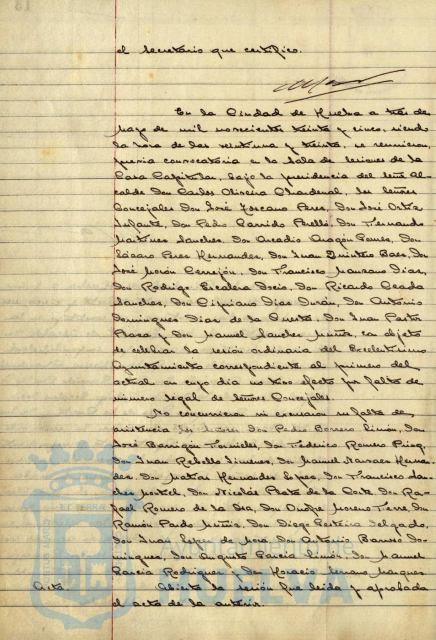 el secretario que certifico.
En la Ciudad de Huelva a tres de
Mayo de mil novecientos treinta y cinco, siendo
la hora de las veintiuna y treinta, se reunieron,
previa convocatoria en la Sala de sesiones de la
Casa Capitular, bajo la presidencia del señor Al-
calde Don Carlos Oliveira Chardenal, los señores
Concejales Don José Toscano Peres, Don José Ortiz
Infante, Don Pedro Garrido Perelló, Don Fernando
Martinez Sanchez, Don Arcadio Aragón Gomez, Don
Lázaro Perez Hernandez, Don Juan Quintero Baez, Don
José Morón Cerrejón, Don Francisco Manzano Diaz,
Don Rodrigo Escalera Docio, Don Ricardo Ceada
Sanchez, Don Cipriano Diaz Durán, Don Antonio
Dominguez Diaz de la Cuesta, Don Juan Pastor
Plaza y Don Manuel Sanchez Muñiz, con objeto
de celebrar la sesión ordinaria del Excelentisimo
Ayuntamiento correspondiente al primero del
actual en cuyo dia no tuvo efecto por falta de
número legal de señores Concejales.
No concurrieron ni excusaron su falta de
asistencia los señores Don Pedro Borrero Limón, Don
José Barrigón Fornieles, Don Federico Romero
Don Juan Rebollo Jimenez, Don Manuel Narvaez Hernan-
dez, Don Matias Hernandez Lopez, Don Francisco San-
chez Don Nicolás Prata de la Corte, Don Ra-
fael Romero de la Don Onofre Moreno Don
Ramón Pardo Muñiz, Don Diego Delgado,
Don Juan Lopez de Mora, Don Antonio Barroso Do-
minguez, Don Augusto Garcia Limón, Don Manuel
Garcia Rodriguez y Don Horacio Serrano Marquez
Acta. Abierta la sesión fue leida y aprobada
el acta de la anterior.